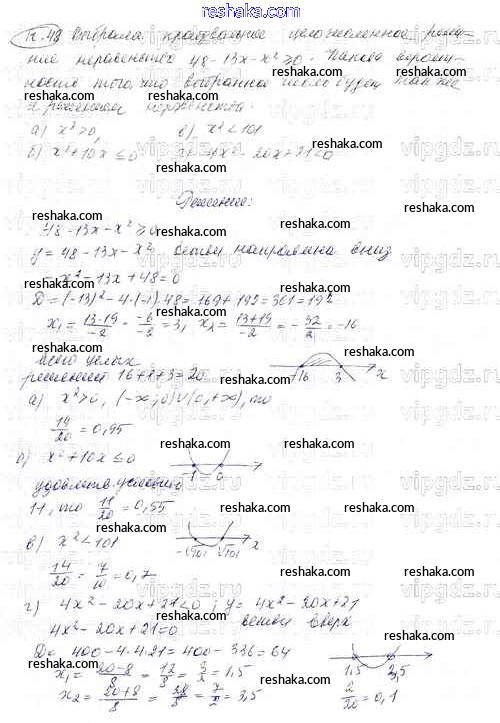 reshaka.com
К.48 Выбрали произвольное целочисленное реше-
ние неравенства 48 - 13x - x² ≥ 0. Какова вероят-
ность того, что выбранное число будет также
решением неравенства:
а) x² > 0, в) x² < 101
б) x² + 10x ≤ 0 г) 4x² - 20x + 21 < 0
Решение:
48 - 13x - x² ≥ 0
y = 48 - 13x - x², ветви направлена вниз
-x² - 13x + 48 = 0
D = (-13)² - 4·(-1)·48 = 169 + 192 = 361 = 19²
x₁ = (13-19)/-2 = -6/-2 = 3, x₂ = (13+19)/-2 = -32/2 = -16
всего целых
решений 16+1+3=20 -16 3 x
а) x² > 0, (-∞; 0) ∪ (0; +∞), то
19/20 = 0,95
б) x² + 10x ≤ 0
удовлетв. условию
11, то 11/20 = 0,55
в) x² < 101 -√101 √101 x
14/20 = 7/10 = 0,7
г) 4x² - 20x + 21 < 0; y = 4x² - 20x + 21
4x² - 20x + 21 = 0 ветви вверх
D = 400 - 4·4·21 = 400 - 336 = 64
x₁ = (20-8)/8 = 12/8 = 3/2 = 1,5 1,5 3,5
x₂ = (20+8)/8 = 28/8 = 7/2 = 3,5 2/20 = 0,1
reshaka.com
vipgdz.ru